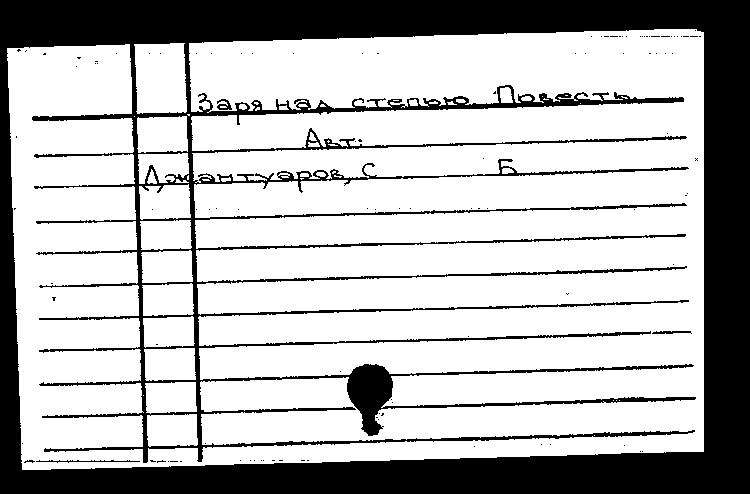 Заря над степью. Повесть.
Авт:
Джантуаров, С Б